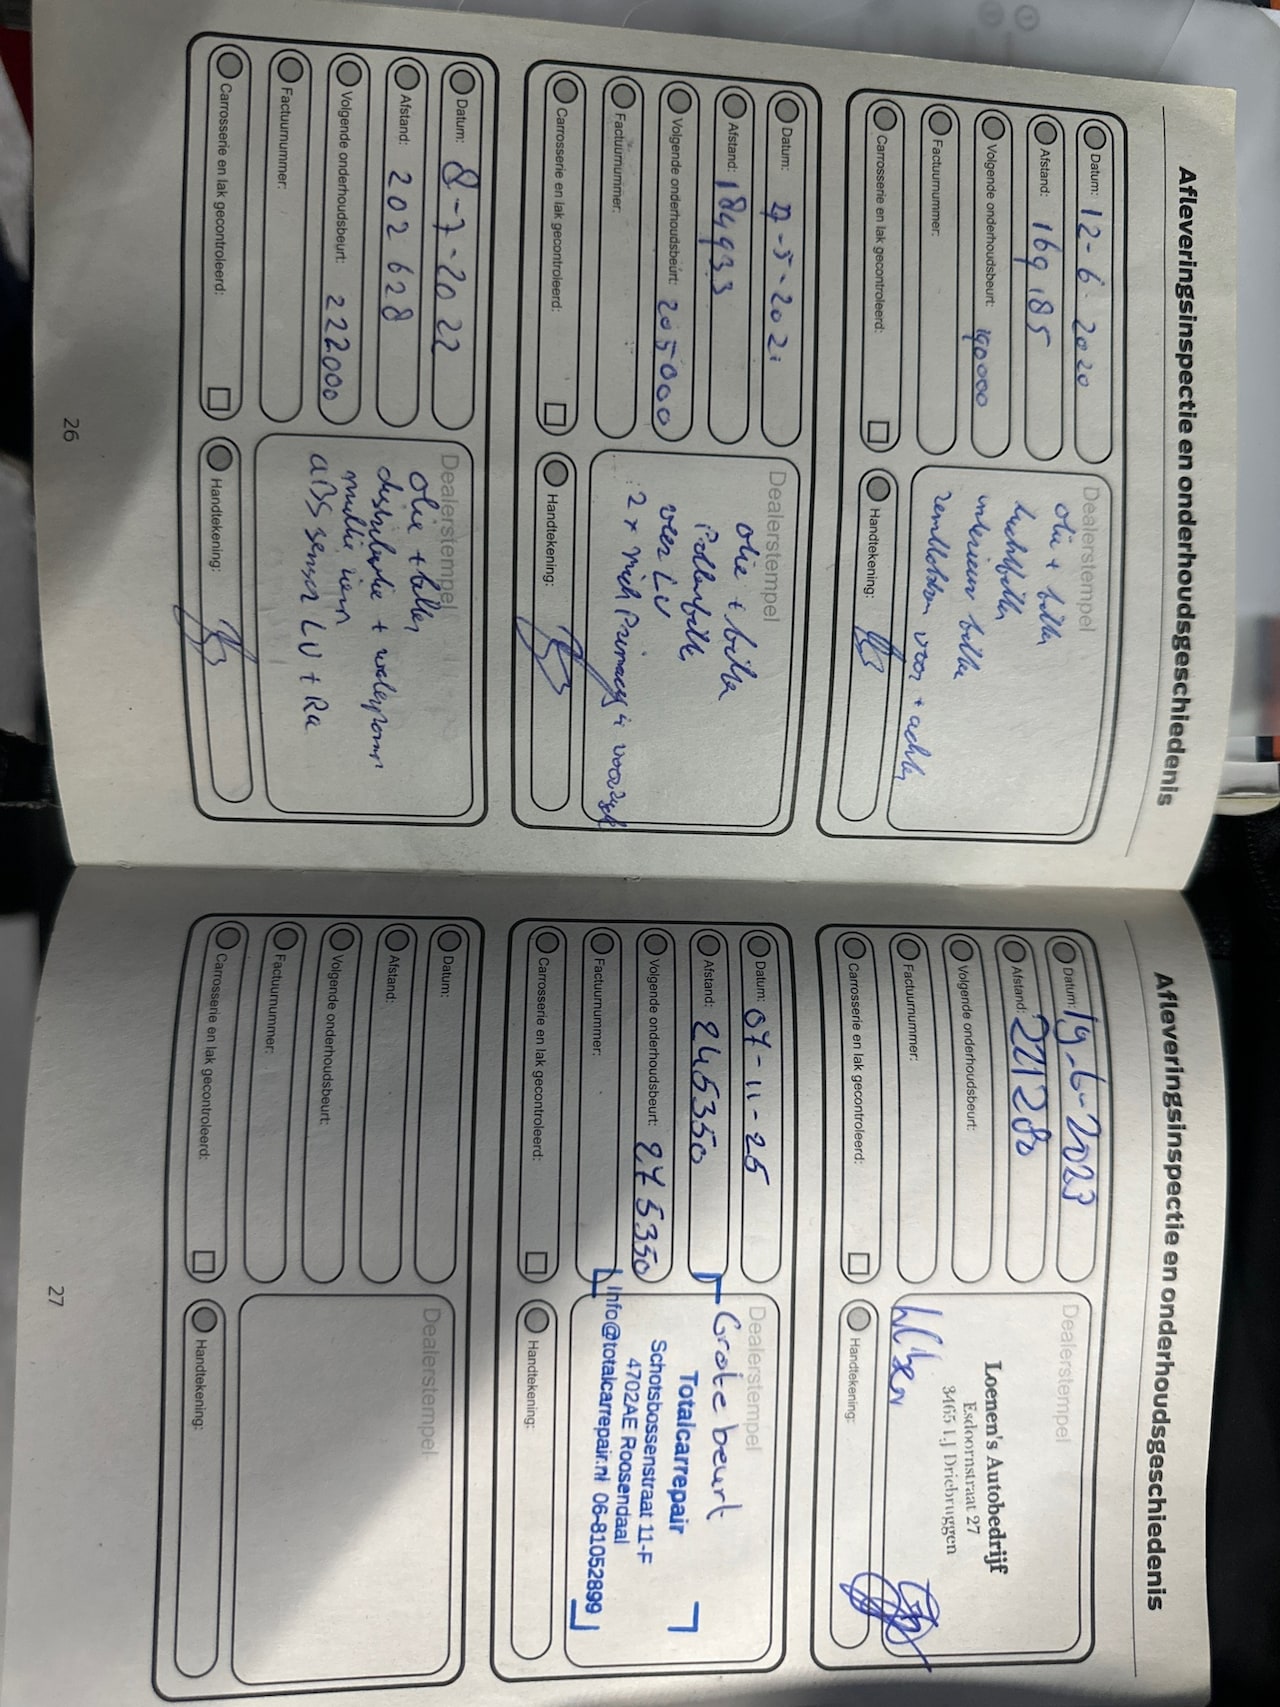 Afleveringsinspectie en onderhoudsgeschiedenis
Datum: 12-6-2020
Afstand: 169.185
Volgende onderhoudsbeurt: 190000
Factuurnummer:
Carrosserie en lak gecontroleerd:
Dealerstempel
olie + filter
luchtfilter
interieur filter
remblokken voor + achter
Handtekening:
Datum: 7-5-2021
Afstand: 184933
Volgende onderhoudsbeurt: 205000
Factuurnummer:
Carrosserie en lak gecontroleerd:
Dealerstempel
olie + filter
veer LV
2 x Mich Primacy 4
Handtekening:
Datum: 8-7-2022
Afstand: 202628
Volgende onderhoudsbeurt: 222000
Factuurnummer:
Carrosserie en lak gecontroleerd:
Dealerstempel
olie + filter
distributie + waterpomp
multie riem
ABS sensor LV + RA
Handtekening:
26
Afleveringsinspectie en onderhoudsgeschiedenis
Datum: 19-6-2023
Afstand: 221280
Volgende onderhoudsbeurt:
Factuurnummer:
Carrosserie en lak gecontroleerd:
Dealerstempel
Loenen's Autobedrijf
Esdoornstraat 27
3465 LJ Driebruggen
Handtekening:
Datum: 07-11-25
Afstand: 245350
Volgende onderhoudsbeurt: 275350
Factuurnummer:
Carrosserie en lak gecontroleerd:
Dealerstempel
Grote beurt
Totalcarrepair
Schotsbossenstraat 11-F
4702AE Roosendaal
Info@totalcarrepair.nl 06-81052899
Handtekening:
Datum:
Afstand:
Volgende onderhoudsbeurt:
Factuurnummer:
Carrosserie en lak gecontroleerd:
Dealerstempel
Handtekening:
27